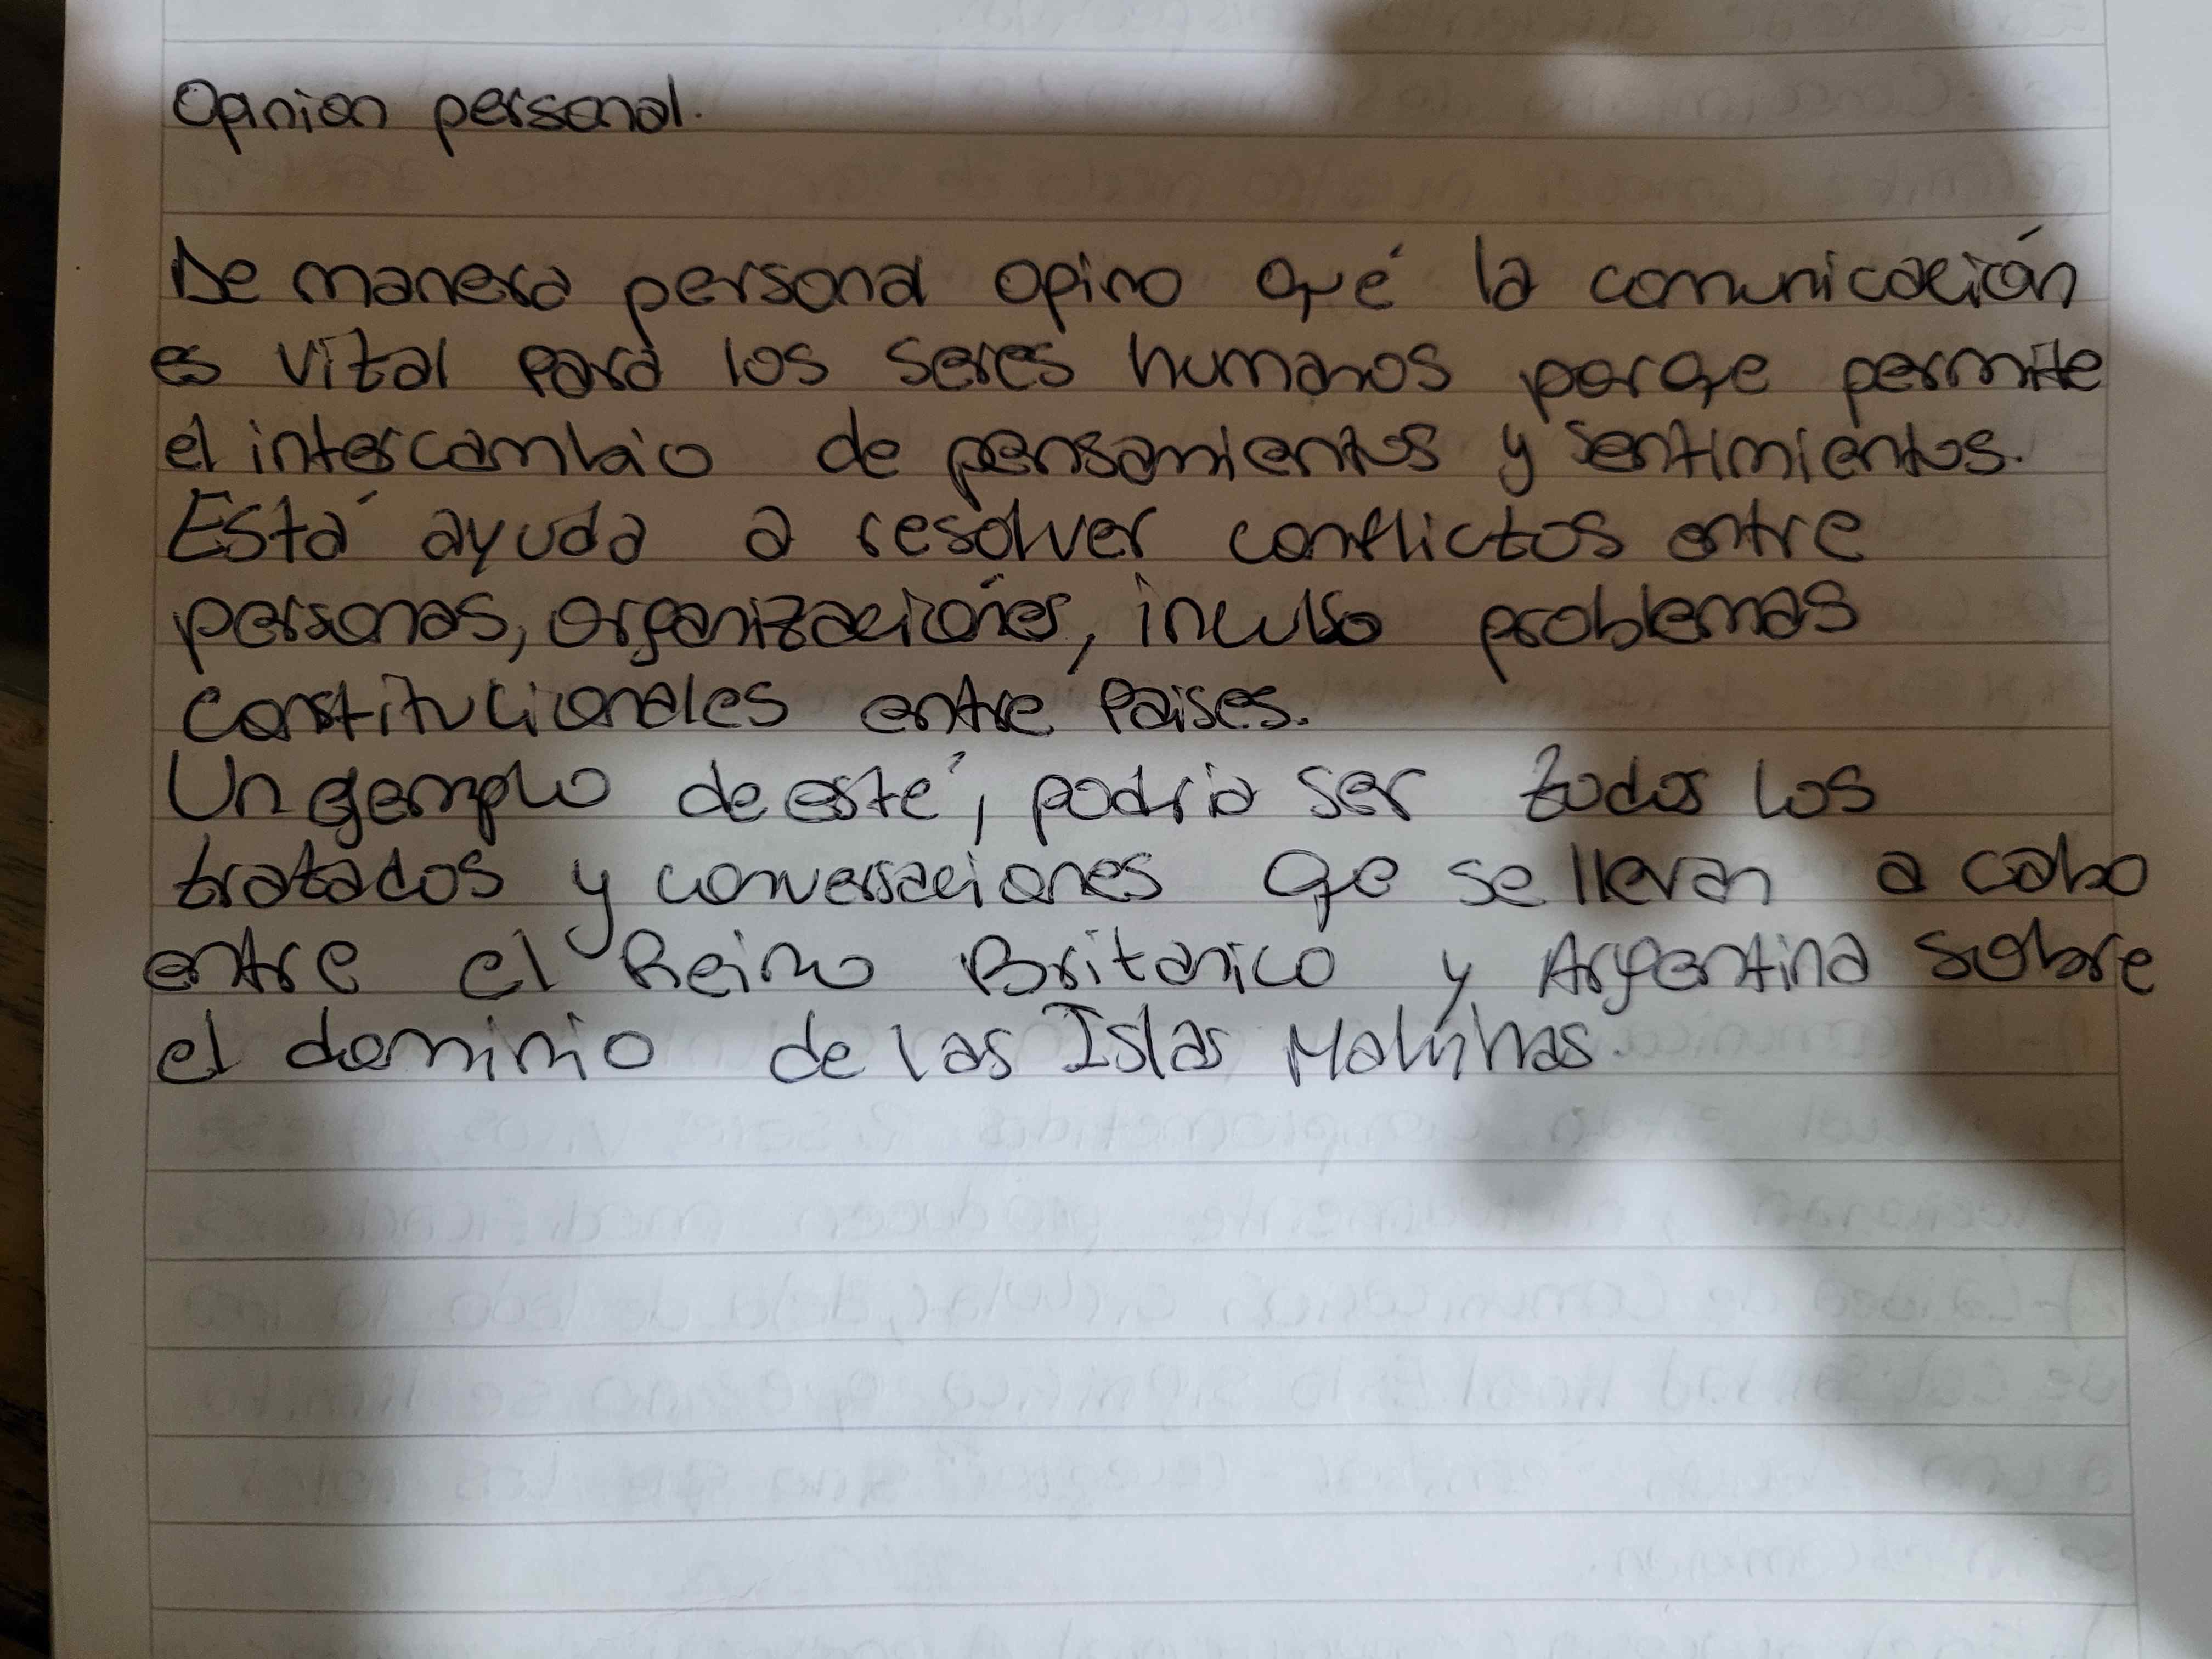 Opinion personal.
De manera personal opino qué la comunicación
es vital para los seres humanos porqe permite
el intercambio de pensamientos y sentimientos.
Está ayuda a resolver conflictos entre
personas, organizaciónes, incluso problemas
constitucionales entre Paises.
Un ejemplo de esté, podria ser todos los
tratados y conversaciones qe se llevan a cabo
entre el Reino Britanico y Argentina sobre
el dominio de las Islas Malvinas.